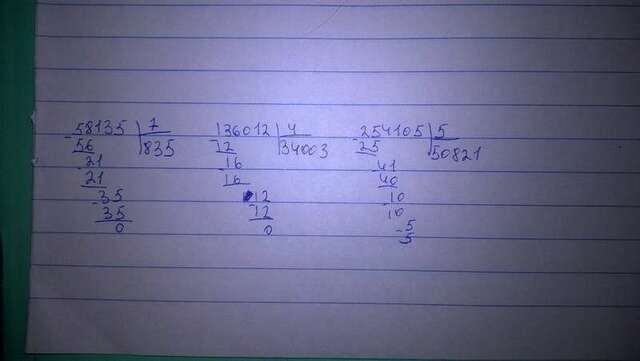 58135 7
- 56 835
- 21
21
- 35
35
0
136012 4
- 12 34003
- 16
16
12
12
0
254105 5
- 25 50821
- 41
40
- 10
10
- 5
5